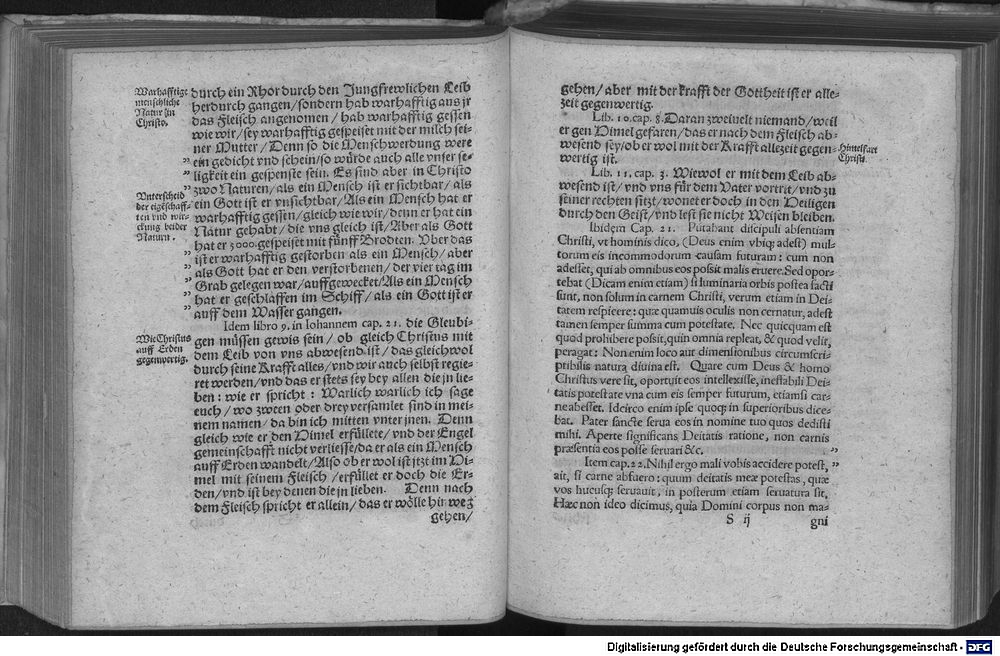 Warhafftige
menschliche
Natur in
Christo.
durch ein Rhor durch den Jungfrewlichen Leib
herdurch gangen / sondern hab warhafftig aus jr
das Fleisch angenomen / hab warhafftig gessen
wie wir / sey warhafftig gespeiset mit der milch sei-
ner Mutter / Denn so die Menschwerdung were
ein gedicht vnd schein / so würde auch alle vnser se-
ligkeit ein gespenste sein. Es sind aber in Christo
zwo Naturen / als ein Mensch ist er sichtbar / als
Vnterscheid
der eigeschaff-
ten vnd wir-
ckung beider
Naturn.
ein Gott ist er vnsichtbar / Als ein Mensch hat er
warhafftig gessen / gleich wie wir / denn er hat ein
Natur gehabt / die vns gleich ist / Aber als Gott
hat er 5000. gespeiset mit fünff Brodten. Vber das
ist er warhafftig gestorben als ein Mensch / aber
als Gott hat er den verstorbenen / der vier tag im
Grab gelegen war / auffgewecket / Als ein Mensch
hat er geschlaffen im Schiff / als ein Gott ist er
auff dem Wasser gangen.
Idem libro 9. in Iohannem cap. 21. die Gleubi-
Wie Christus
auff Erden
gegenwertig.
gen müssen gewis sein / ob gleich Christus mit
dem Leib von vns abwesend ist / das gleichwol
durch seine Krafft alles / vnd wir auch selbst regie-
ret werden / vnd das er stets sey bey allen die jn lie-
ben : wie er spricht : Warlich warlich ich sage
euch / wo zween oder drey versamlet sind in mei-
nem namen / da bin ich mitten vnter jnen. Denn
gleich wie er den Himel erfüllete / vnd der Engel
gemeinschafft nicht verliesse / da er als ein Mensch
auff Erden wandelt / Also ob er wol ist jtzt im Hi-
mel mit seinem Fleisch / erfüllet er doch die Er-
den / vnd ist bey denen die jn lieben. Denn nach
dem Fleisch spricht er allein / das er wölle hinweg
gehen /
gehen / aber mit der krafft der Gottheit ist er alle-
zeit gegenwertig.
Lib. 10. cap. 8. Daran zweiuelt niemand / weil
er gen Himel gefaren / das er nach dem Fleisch ab-
wesend sey / ob er wol mit der Krafft allezeit gegen-
wertig ist.
Himelfart
Christi.
Lib. 11. cap. 3. Wiewol er mit dem Leib ab-
wesend ist / vnd vns für dem Vater vortrit / vnd zu
seiner rechten sitzt / wonet er doch in den Heiligen
durch den Geist / vnd lest sie nicht Weisen bleiben.
Ibidem Cap. 21. Putabant discipuli absentiam
Christi, vt hominis dico, (Deus enim vbiq; adest) mul-
torum eis incommodorum causam futuram : cum non
adesset, qui ab omnibus eos possit malis eruere. Sed opor-
tebat (Dicam enim etiam) si luminaria orbis postea facti
sunt, non solum in carnem Christi, verum etiam in Dei-
tatem respicere : quæ quamuis oculis non cernatur, adest
tamen semper summa cum potestate. Nec quicquam est
quod prohibere possit, quin omnia repleat, & quod velit,
peragat : Non enim loco aut dimensionibus circumscri-
ptibilis natura diuina est. Quare cum Deus & homo
Christus vere sit, oportuit eos intellexisse, ineffabili Dei-
tatis potestate vna cum eis semper futurum, etiamsi car-
ne abesset. Idcirco enim ipse quoq; in superioribus dice-
bat. Pater sancte serua eos in nomine tuo quos dedisti
mihi. Aperte significans Deitatis ratione, non carnis
præsentia eos posse seruari &c.
Item cap. 22. Nihil ergo mali vobis accidere potest,
ait, si carne abfuero : quum deitatis meæ potestas, quæ
vos hucusq; seruauit, in posterum etiam seruatura sit.
Hæc non ideo dicimus, quia Domini corpus non ma-
S ij
gni
Digitalisierung gefördert durch die Deutsche Forschungsgemeinschaft - DFG